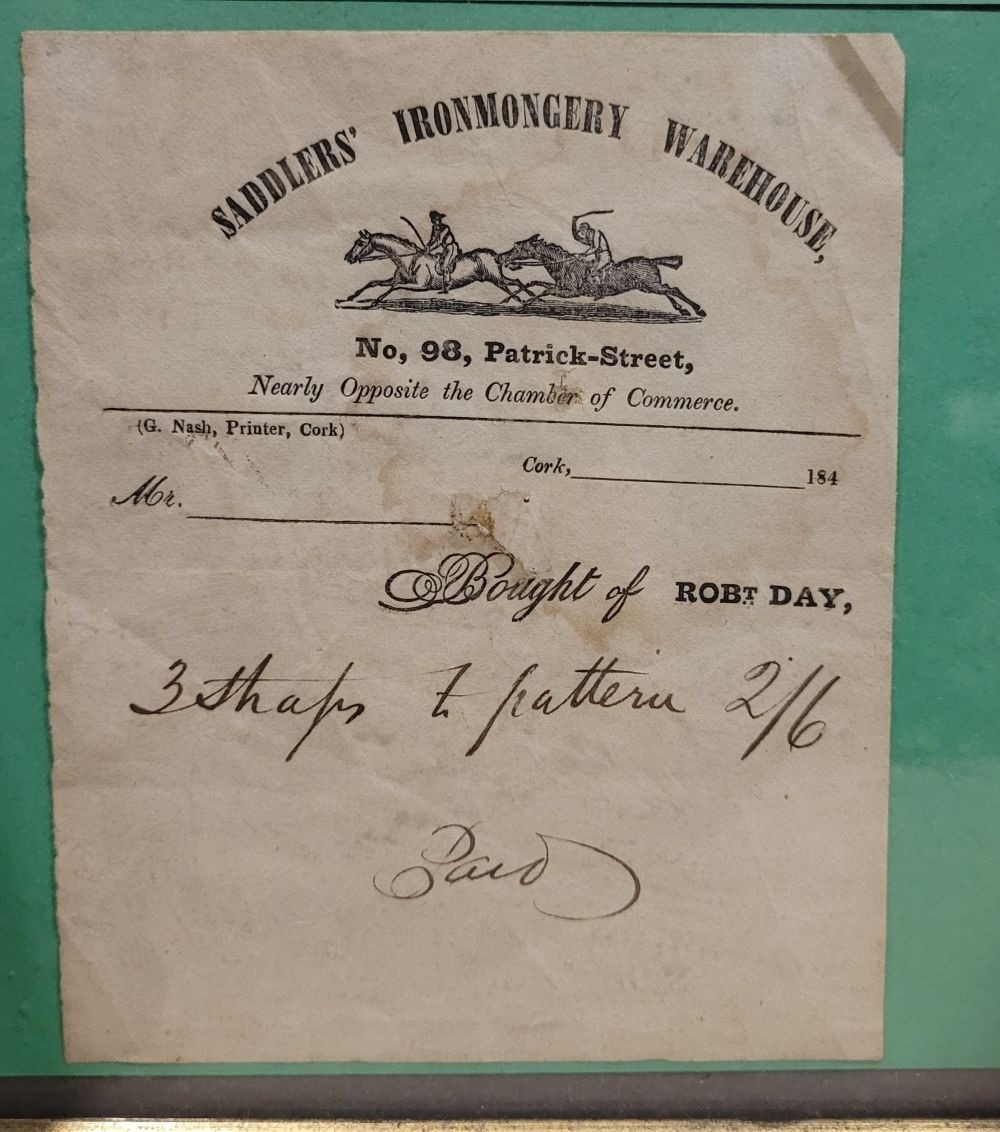 SADDLERS' IRONMONGERY WAREHOUSE,
No, 98, Patrick-Street,
Nearly Opposite the Chamber of Commerce.
(G. Nash, Printer, Cork)
Cork, 184
Mr.
Bought of ROBT DAY,
3 straps to pattern 2/6
Paid